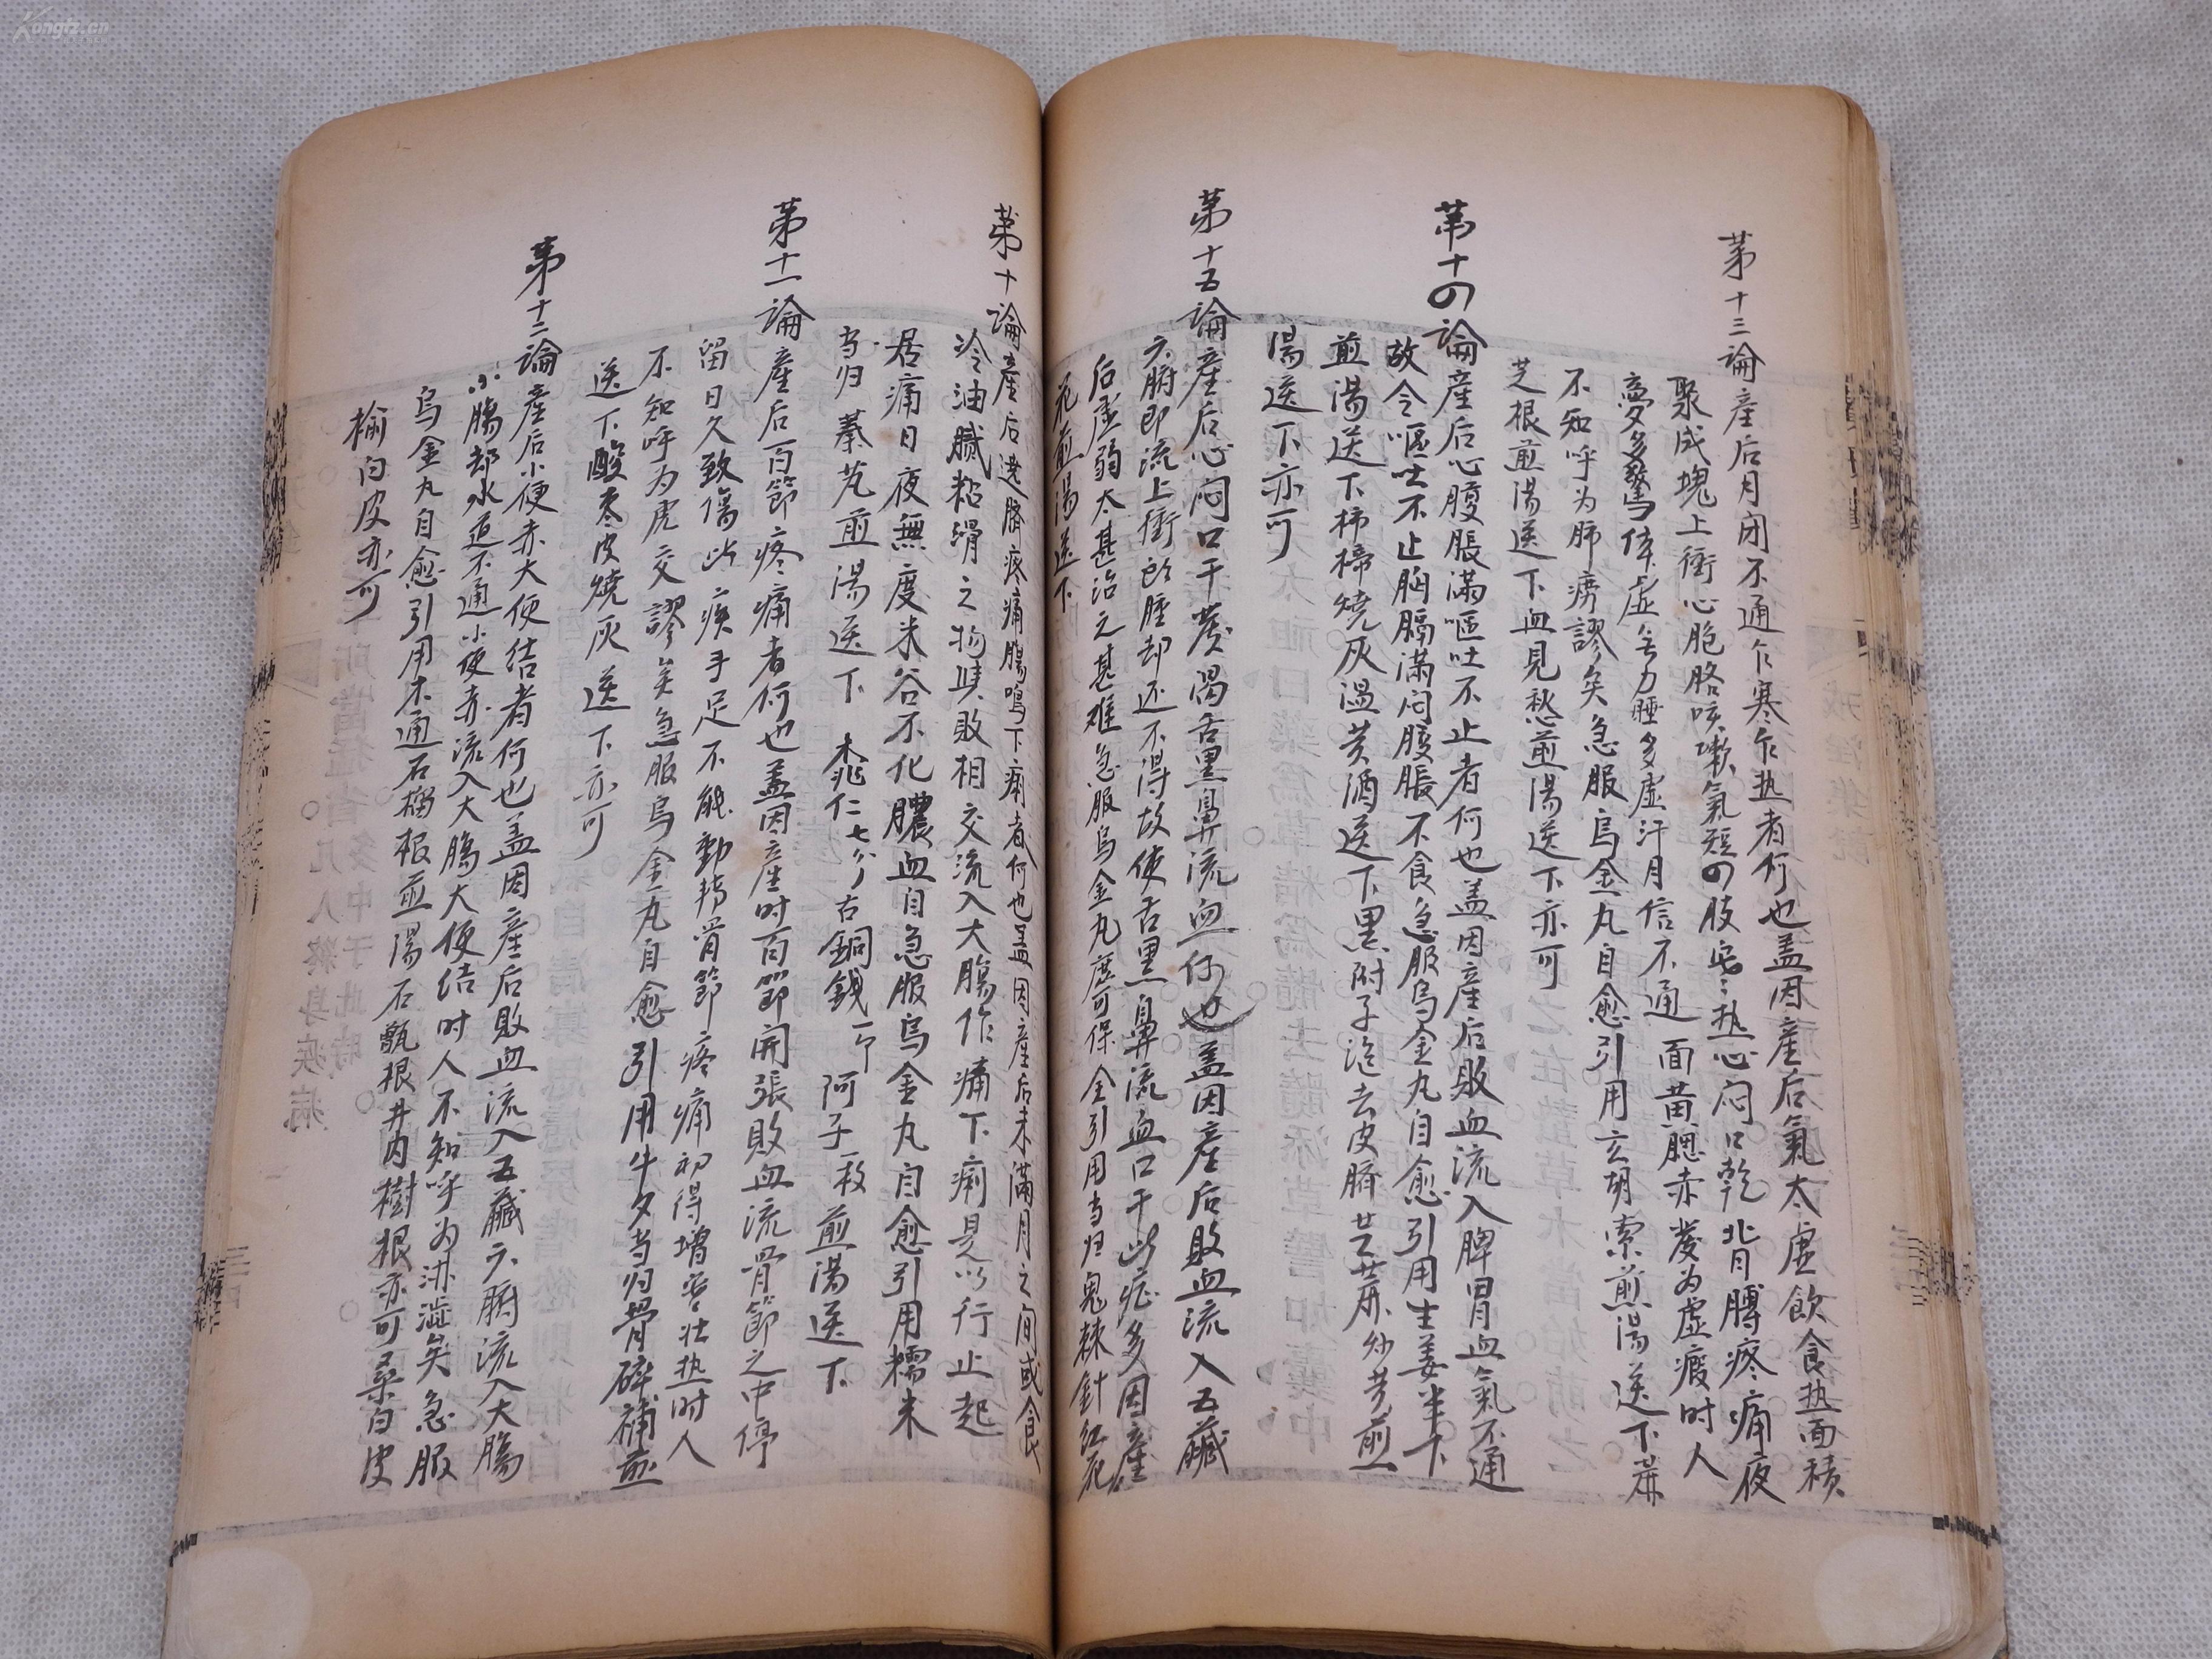 第十三論產后月闭不通乍寒乍热者何也盖因產后氣太虛飲食热面積
聚成塊上衝心胞胳咳嗽氣短四肢热心闷口乾背膊疼痛夜
夢多驚体虛无力睡多虛汗月信不通面黄腮赤發为虛瘕时人
不知呼为肺痨謬矣急服烏金丸自愈引用玄胡索煎湯送下
芝根煎湯送下血見愁煎湯送下亦可
第十四論產后心腹脹滿嘔吐不止者何也盖因產后敗血流入脾胃血氣不通
故令嘔吐不止胸膈滿闷腹脹不食急服烏金丸自愈引用生姜半下
煎湯送下柿楴燒灰温黄酒送下黑附子泡去皮臍芝蔴炒黄煎
湯送下亦可
第十五論產后心闷口干發渴舌黑鼻流血何也盖因產后敗血流入五臟
六腑即流上衝却还不得故使舌黑鼻流血口干此症多因產
后虛弱太甚治之甚难急服烏金丸庶可保全引用当归鬼棘針红花
花煎湯送下
第十論產后遶臍疼痛腸鳴下痢者何也盖因產后未滿月之间或食
冷油膩粘滑之物與敗相交流入大腸作痛下痢是以行止起
居痛日夜無度米谷不化膿血自急服烏金丸自愈引用糯米
当归 蓁艽煎湯送下 桃仁七分 古銅錢一个 阿子一枚煎湯送下
第十一論產后百節疼痛者何也盖因產时百節開張敗血流骨節之中停
留日久致傷此疾手足不能動轉骨節疼痛初得增寒壮热时人
不知呼为虎交謬矣急服烏金丸自愈引用牛夕当归骨碎補煎
送下酸枣皮燒灰送下亦可
第十二論產后小便赤大便结者何也盖因產后敗血流入五臟六腑流入大腸
小腸却水道不通小便赤流入大腸大便结时人不知呼为淋澁矣急服
烏金丸自愈引用木通石榴根煎湯石甎根井内樹根亦可桑白皮
榆白皮亦可
Kongfz.cn